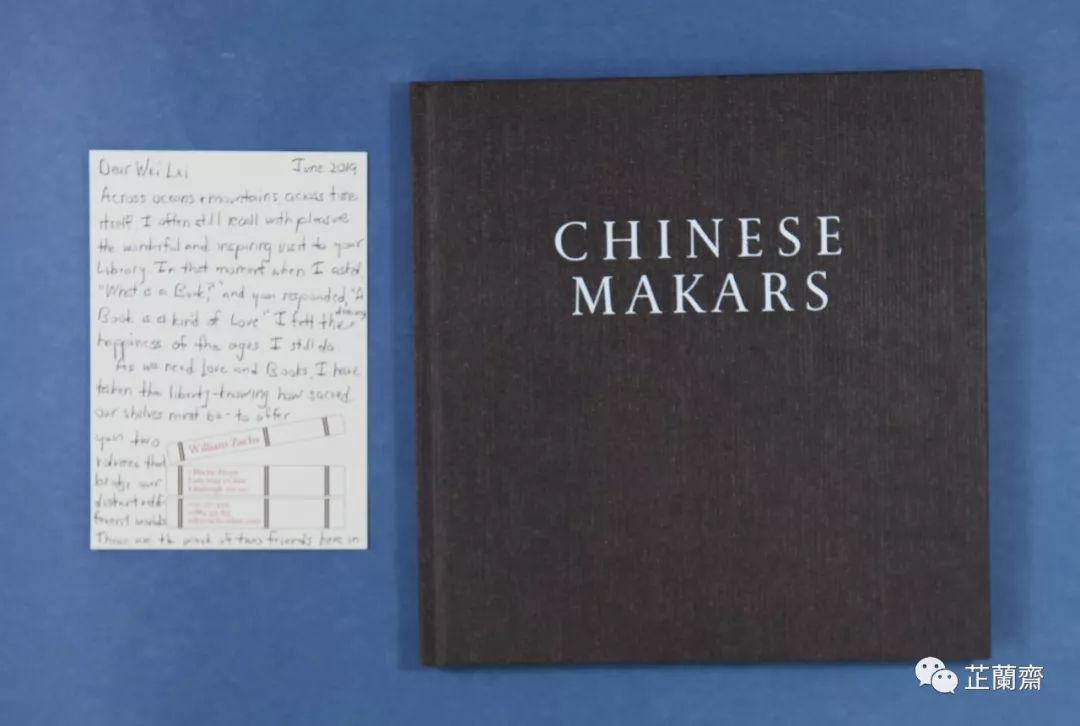 Dear Wei Lui June 2019
Across oceans + mountains, across time
itself, I often still recall with pleasure
the wonderful and inspiring visit to your
Library. In that moment when I asked
"What is a Book?" and you responded, "A
Book is a kind of Love" I felt the
happiness of the ages. I still do
As we need Love and Books, I have
taken the liberty-knowing how sacred
our shelves must be - to offer
you two
volumes that
bridge our
distant
worlds
These are the work of two friends here in
William Zachs
CHINESE
MAKARS
芷蘭齋